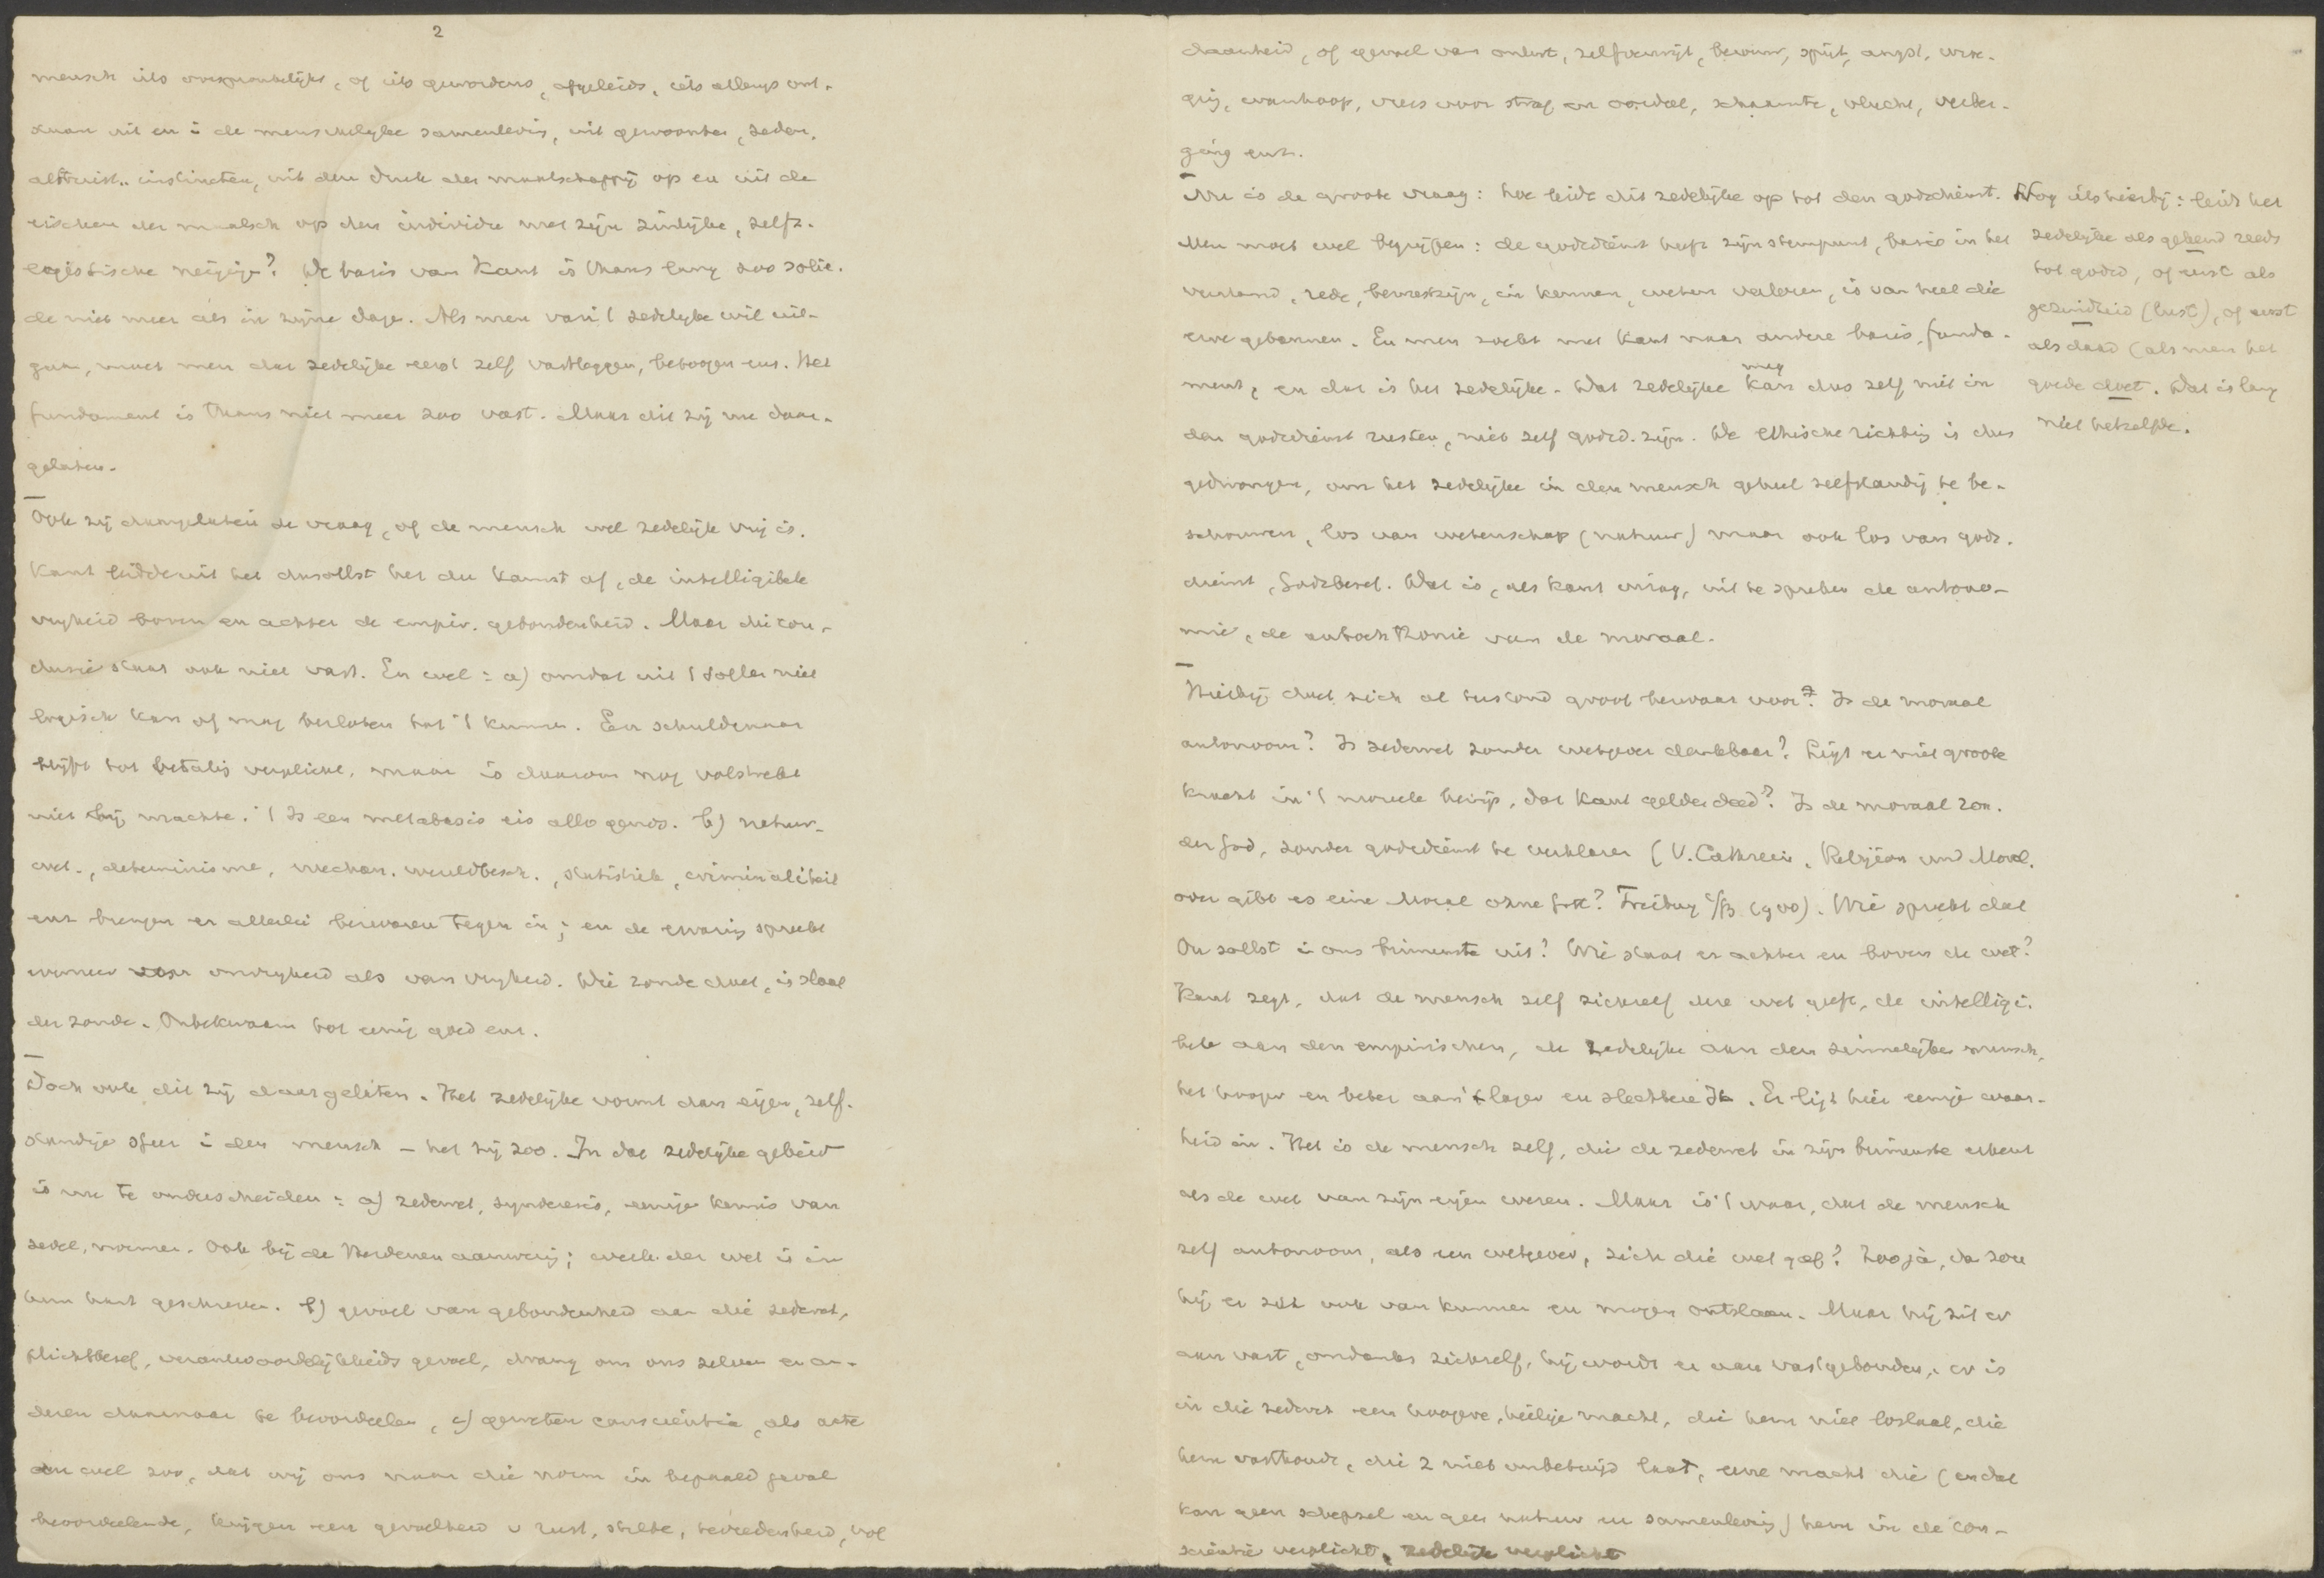 2
mensch iets oorspronkelijks, of iets gewordens, afgeleids, iets allengs ont-
staan uit en i de menschelijke samenlevig, uit gewoonten, zeden,
altruist.. instincten, uit den druk der maatschappij op en uit de
eischen der maatsch op den individu met zijn zinlijke, zelfz.
egoistische neigige? De basis van Kant is thans lang zoo solie-
de niet meer als in zijne dage. Als men van 't zedelijke wil uit-
gaan, moet men dat zedelijke eerst zelf vastleggen, betoogen enz. Het
fundament is thans niet meer zoo vast. Maar dit zij nu daar-
gelaten.
Ook zij daargelaten de vraag, of de mensch wel zedelijk vrij is.
Kant leidde uit het du sollst het du kannst af, de intelligibele
vrijheid boven en achter de empir. gebondenheid. Maar die con-
clusie staat ook niet vast. En wel: a) omdat uit 't sollen niet
logisch kan of mag besloten tot 't kunnen. Een schuldenaar
blijft tot betalig verplicht, maar is daarom nog volstrekt
niet bij machte. 't Is een metabasis eis allo genos. b) natuur-
wet., determinisme, mechan. wereldbesch., statistiek, criminaliteit
enz brengen er allerlei bezwaren tegen in; en de ervarig spreekt
evenzeer voor onvrijheid als van vrijheid. Wie zonde doet, is slaaf
der zonde. Onbekwaam tot eenig goed enz.
Doch ook dit zij daargelaten. Het zedelijke vormt dan eigen, zelf-
standige sfeer i den mensch – het zij zoo. In dat zedelijke gebied
is nu te onderscheiden: a) zedewet, synderesis, eenige kennis van
zedel. normen. Ook bij de Heidenen aanwezig; werk der wet is in
hun hart geschreven. b) gevoel van gebondenheid aan die zedewet,
plichtbesef, verantwoordelijkheidsgevoel, drang om ons zelven en an-
deren daarnaar te beoordeelen, c) geweten conscientia, als acte
en wel zoo, dat wij ons naar die norm in bepaald geval
beoordeelende, krijgen een gevoelheid v rust, stilte, tevredenheid, vol
daanheid, of gevoel van onlust, zelfverwijt, berouw, spijt, angst, wroe-
ging, wanhoop, vrees voor straf en oordeel, schaamte, vlucht, verber-
ging enz.
Nu is de groote vraag: hoe leidt dit zedelijke op tot den godsdienst.
Men moet wel begrijpen: de godsdienst heeft zijn steunpunt, basis in het
verstand, rede, bewustzijn, in kennen, weten verloren, is van heel die
erve gebannen. En men zoekt met Kant naar andere basis, funda-
ment, en dat is het zedelijke. Dat zedelijke kan mag dus zelf niet in
den godsdienst rusten, niet zelf godsd. zijn. De ethische richtig is dus
gedwongen, om het zedelijke in den mensch geheel zelfstandig te be-
schouwen, los van wetenschap (natuur) maar ook los van gods-
dienst, Godsbesef. Dat is, als Kant vroeg, uit te spreken de autono-
mie, de autochthonie van de moraal.
Hierbij doet zich al terstond groot bezwaar voor? Is de moraal
autonoom? Is zedewet zonder wetgever denkbaar? Ligt er niet groote
kracht in 't moreele bewijs, dat Kant gelden deed? Is de moraal zon-
der God, zonder godsdienst te verklaren (V. Cathrein, Religion und Moral,
oder gibt es eine Moral ohne Gott? Freiburg 1900). Wie spreekt dat
Du sollst i ons binnenste uit? Wie staat er achter en boven de wet?
Kant zegt, dat de mensch zelf zichzelf die wet geeft, de intelligi-
bele aan den empirischen, de zedelijke aan den zinnelijken mensch,
het hooger en beter aan 't lager en slechtere Ik. Er ligt hier eenige waar-
heid in. Het is de mensch zelf, die de zedewet in zijn binnenste erkent
als de wet van zijn eigen wezen. Maar is 't waar, dat de mensch
zelf autonoom, als een wetgever, zich die wet gaf? Zoo ja, da zou
hij er zich ook van kunnen en mogen ontslaan. Maar hij zit er
aan vast, ondanks zichzelf, hij wordt er aan vastgebonden, er is
in die zedewet een hoogere, heilige macht, die hem niet loslaat, die
hem vasthoudt, die z niet onbetuigd laat, eene macht die (en dat
kan geen schepsel en geen natuur en samenlevig) hem in de con-
scientie verplicht, zedelijk verplicht
Nog iets hierbij: leidt het
zedelijke als gebod reeds
tot godsd, of eerst als
gezindheid (lust), of eerst
als daad (als men het
goede doet. Dat is lang
niet hetzelfde.